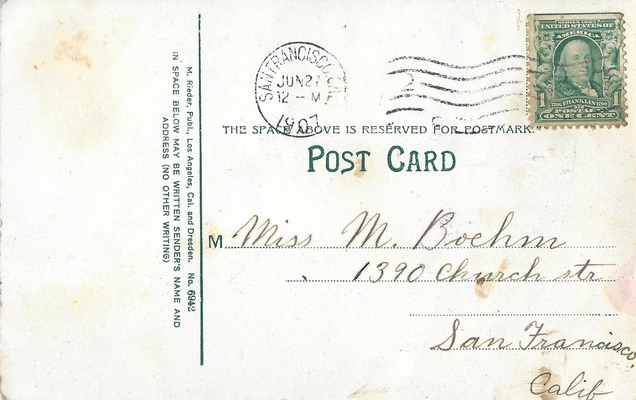 SAN FRANCISCO, CAL.
JUN 27
12 - M
1907
SERIES 1902
UNITED STATES OF
AMERICA
1 FRANKLIN 1
POSTAGE
ONE CENT
THE SPACE ABOVE IS RESERVED FOR POSTMARK.
POST CARD
M. Rieder, Publ., Los Angeles, Cal. and Dresden. No. 6942
IN SPACE BELOW MAY BE WRITTEN SENDER'S NAME AND
ADDRESS (NO OTHER WRITING)
M Miss M. Boehm
1390 Church str
San Francisco,
Calif